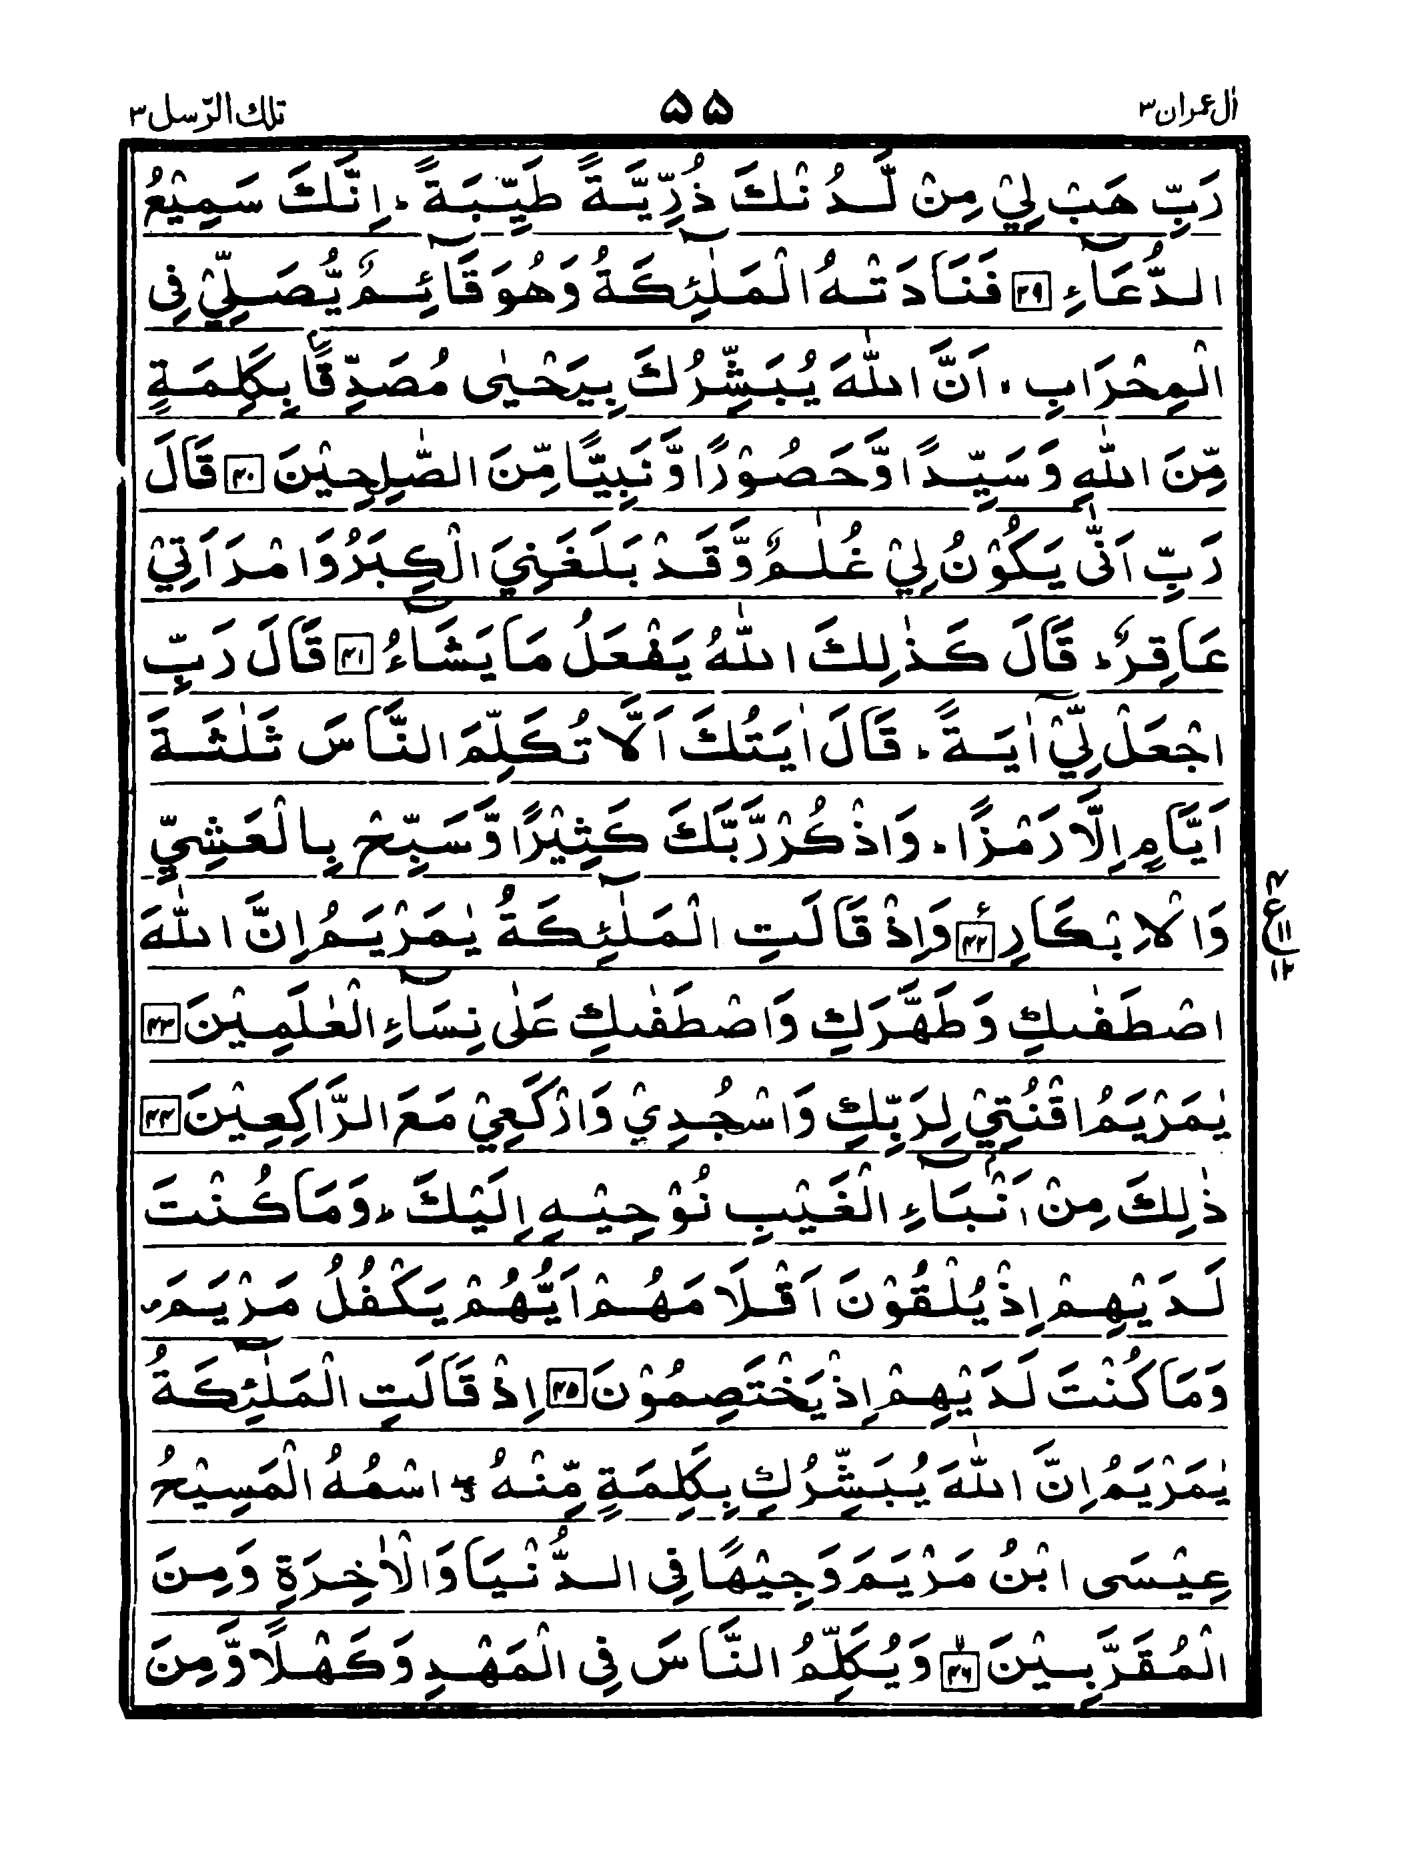 اٰل عمران ٣
۵۵
تلك الرّسل ٣
رَبِّ هَبْ لِيْ مِنْ لَّدُنْكَ ذُرِّيَّةً طَيِّبَةً ۚ اِنَّكَ سَمِيْعُ
الدُّعَآءِ ﴿۳۹﴾ فَنَادَتْهُ الْمَلٰٓئِكَةُ وَهُوَ قَآئِمٌ يُّصَلِّيْ فِى
الْمِحْرَابِ ۙ اَنَّ اللّٰهَ يُبَشِّرُكَ بِيَحْيٰى مُصَدِّقًۢا بِكَلِمَةٍ
مِّنَ اللّٰهِ وَسَيِّدًا وَّحَصُوْرًا وَّنَبِيًّا مِّنَ الصّٰلِحِيْنَ ﴿۴۰﴾ قَالَ
رَبِّ اَنّٰى يَكُوْنُ لِيْ غُلٰمٌ وَّقَدْ بَلَغَنِيَ الْكِبَرُ وَامْرَاَتِيْ
عَاقِرٌ ؕ قَالَ كَذٰلِكَ اللّٰهُ يَفْعَلُ مَا يَشَآءُ ﴿۴۱﴾ قَالَ رَبِّ
اجْعَلْ لِّيْٓ اٰيَةً ؕ قَالَ اٰيَتُكَ اَلَّا تُكَلِّمَ النَّاسَ ثَلٰثَةَ
اَيَّامٍ اِلَّا رَمْزًا ؕ وَاذْكُرْ رَّبَّكَ كَثِيْرًا وَّسَبِّحْ بِالْعَشِيِّ
وَالْاِبْكَارِ ﴿۴۲﴾ وَاِذْ قَالَتِ الْمَلٰٓئِكَةُ يٰمَرْيَمُ اِنَّ اللّٰهَ
ع ۱۱ ۱۲
اصْطَفٰىكِ وَطَهَّرَكِ وَاصْطَفٰىكِ عَلٰى نِسَآءِ الْعٰلَمِيْنَ ﴿۴۳﴾
يٰمَرْيَمُ اقْنُتِيْ لِرَبِّكِ وَاسْجُدِيْ وَارْكَعِيْ مَعَ الرَّاكِعِيْنَ ﴿۴۴﴾
ذٰلِكَ مِنْ اَنْۢبَآءِ الْغَيْبِ نُوْحِيْهِ اِلَيْكَ ؕ وَمَا كُنْتَ
لَدَيْهِمْ اِذْ يُلْقُوْنَ اَقْلَامَهُمْ اَيُّهُمْ يَكْفُلُ مَرْيَمَ ۪
وَمَا كُنْتَ لَدَيْهِمْ اِذْ يَخْتَصِمُوْنَ ﴿۴۵﴾ اِذْ قَالَتِ الْمَلٰٓئِكَةُ
يٰمَرْيَمُ اِنَّ اللّٰهَ يُبَشِّرُكِ بِكَلِمَةٍ مِّنْهُ ۖ اسْمُهُ الْمَسِيْحُ
عِيْسَى ابْنُ مَرْيَمَ وَجِيْهًا فِى الدُّنْيَا وَالْاٰخِرَةِ وَمِنَ
الْمُقَرَّبِيْنَ ﴿۴۶﴾ۙ وَيُكَلِّمُ النَّاسَ فِى الْمَهْدِ وَكَهْلًا وَّمِنَ